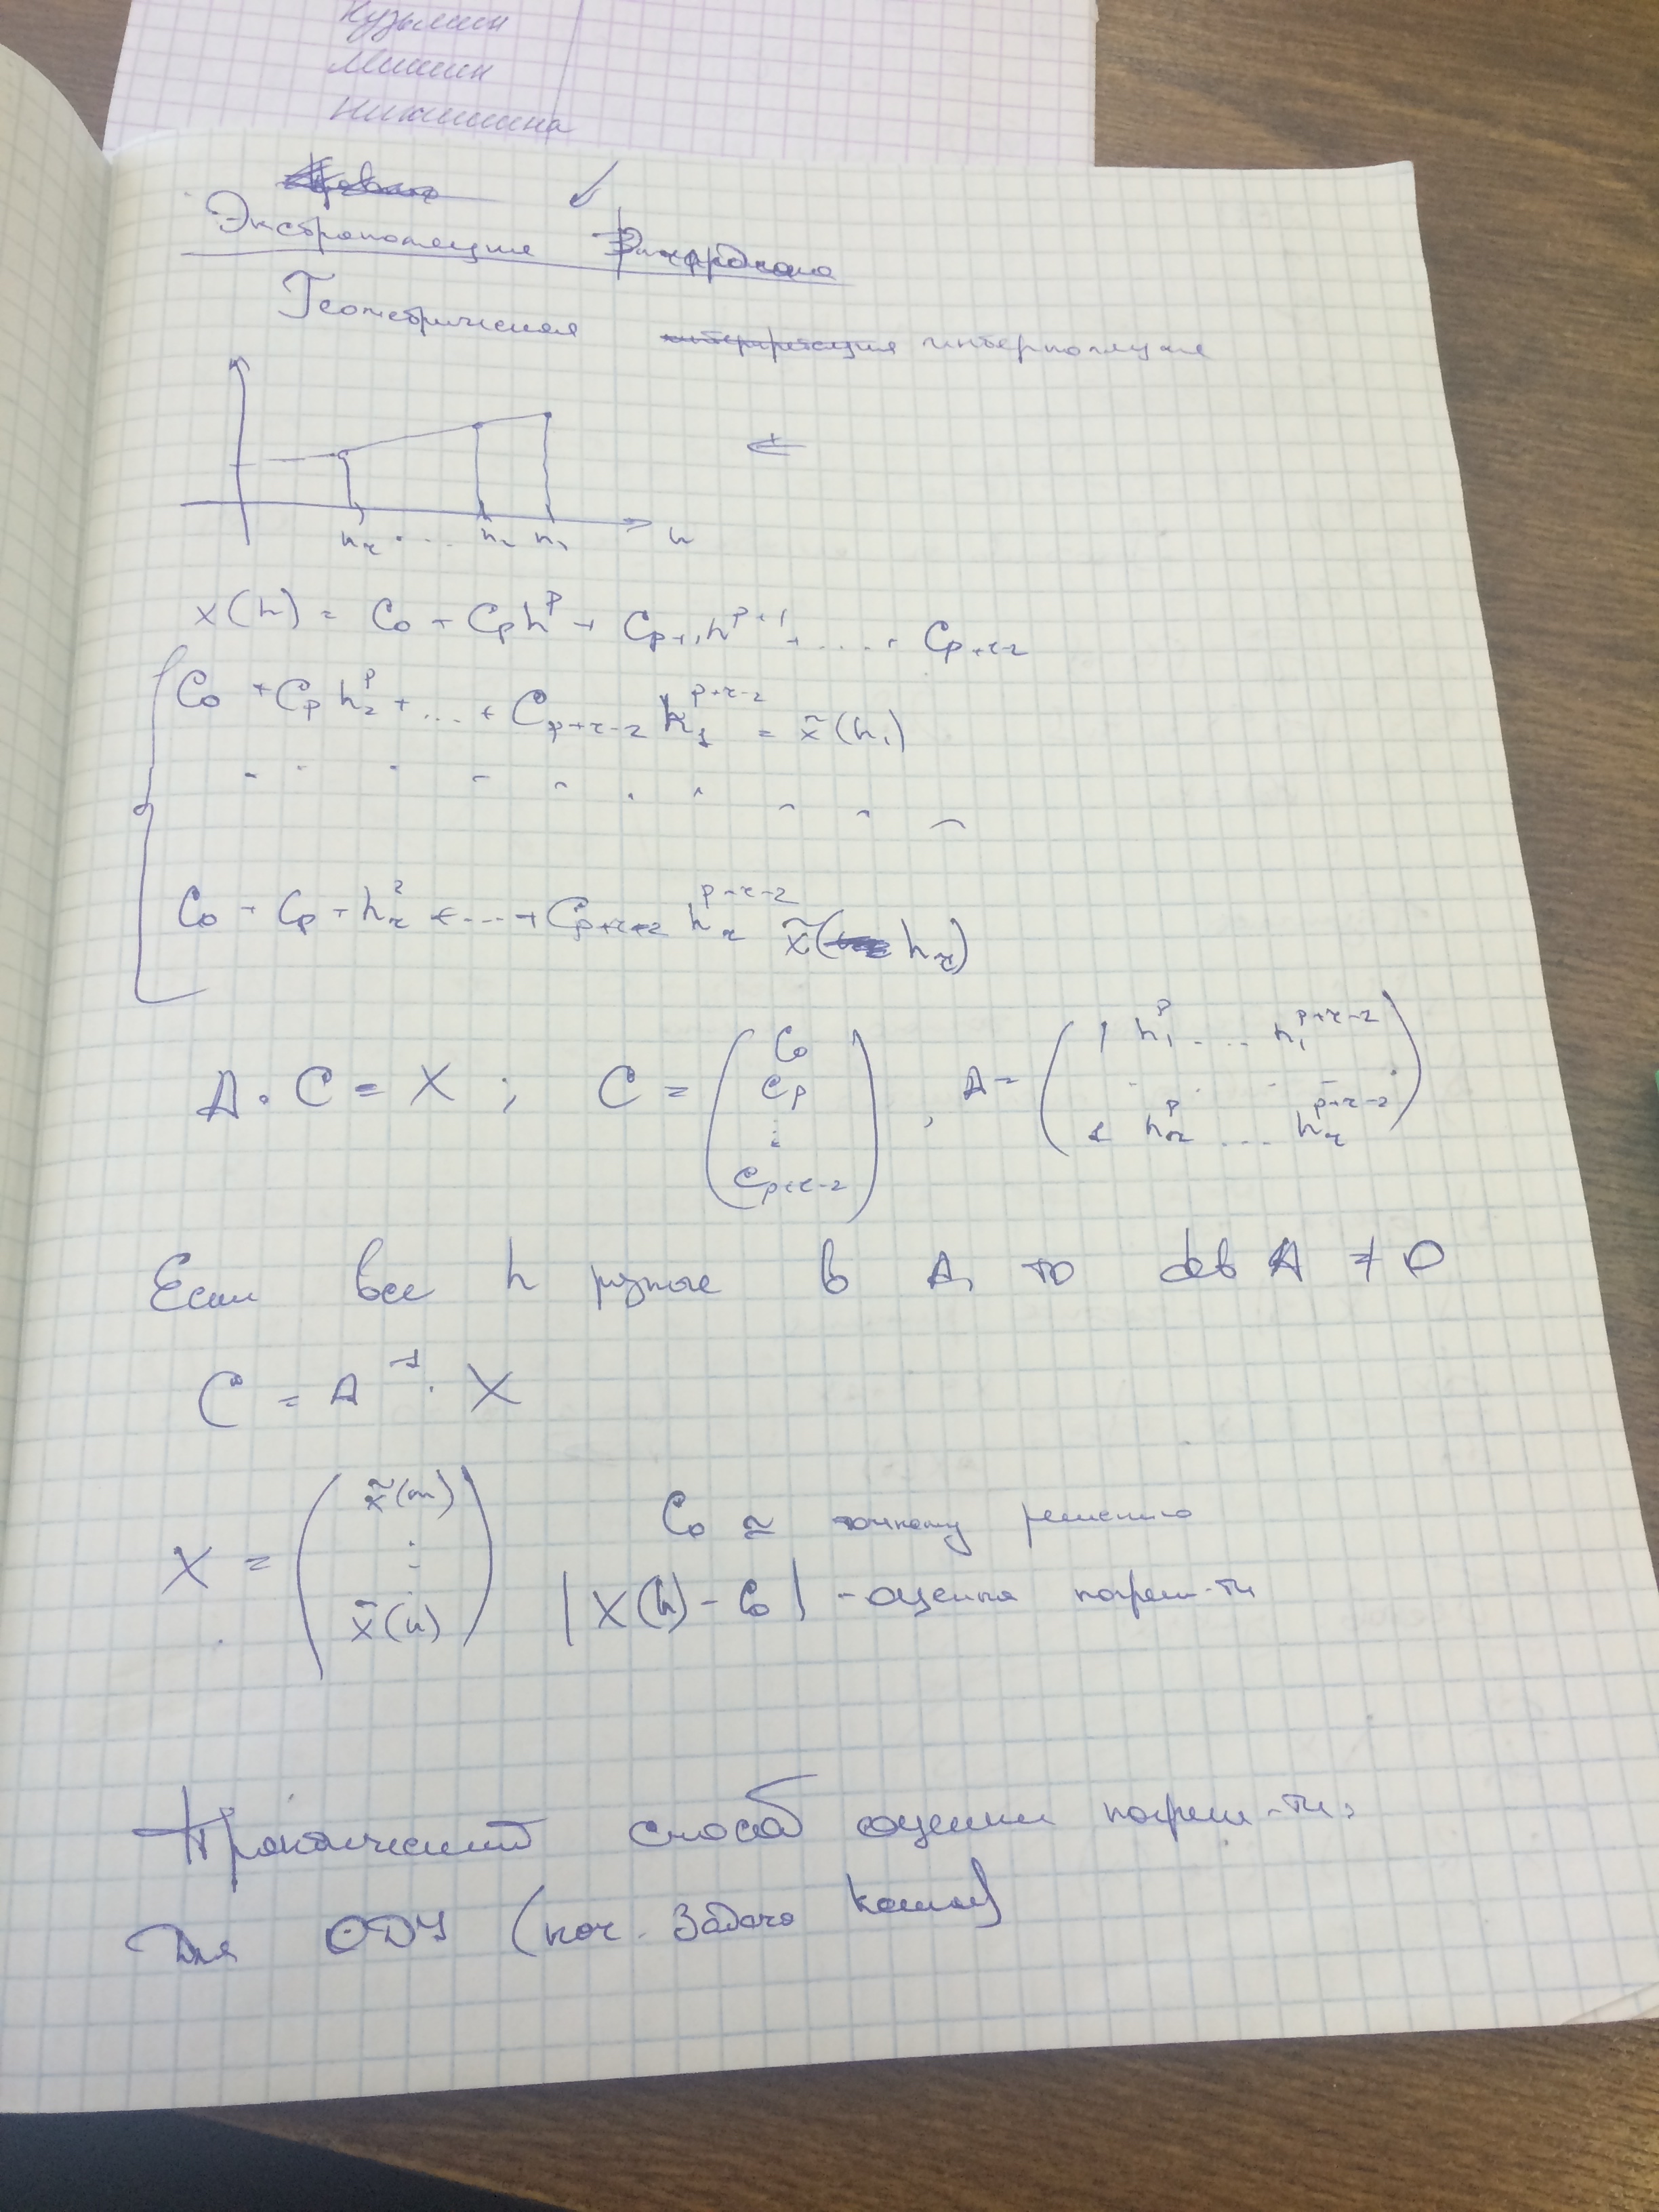 Кузьмин
Мишин
Никишина
Экстраполяция Ричардсона
Геометрическая интерполяция
h_r . . . h_2 h_1 h
x(h) = C_0 + C_p h^p + C_{p+1} h^{p+1} + .... + C_{p+r-2}
C_0 + C_p h_2^p + ... + C_{p+r-2} h_1^{p+r-2} = x̃(h_1)
. . . . . . . . . .
C_0 + C_p + h_r^2 + ... + C_{p+r+2} h_r^{p+r-2} x̃(h_r)
A · C = X ; C = (C_0 C_p ⋮ C_{p+r-2}) , A = (1 h_1^p ... h_1^{p+r-2} . . . . . 1 h_r^p ... h_r^{p+r-2})
Если все h разные в A, то det A ≠ 0
C = A^{-1} · X
X = (x̃(h_1) ⋮ x̃(h))
C_0 ≈ точному решению
|X(h) - C_0| - оценка погреш-ти
Практический способ оценки погреш-ти.
Для ОДУ (нач. задача Коши)